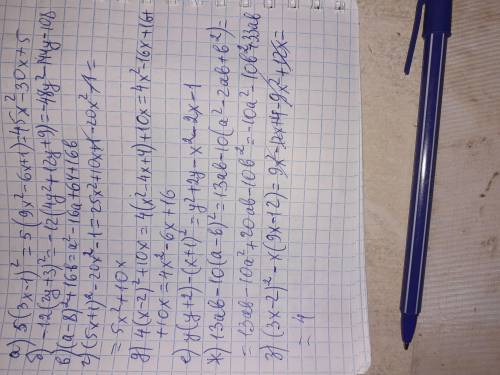 а) 5(3x-1)²=5(9x²-6x+1)=45x²-30x+5
б) -12(2y+3)²=-12(4y²+12y+9)=-48y²-144y-108
в) (a-8)²+16b=a²-16a+64+16b
г) (5x+1)²-20x²-1=25x²+10x+1-20x²-1=
=5x²+10x
д) 4(x-2)²+10x=4(x²-4x+4)+10x=4x²-16x+16+
+10x=4x²-6x+16
е) y(y+2)-(x+1)²=y²+2y-x²-2x-1
ж) 13ab-10(a-b)²=13ab-10(a²-2ab+b²)=
=13ab-10a²+20ab-10b²=-10a²-10b²+33ab
з) (3x-2)²-x(9x-12)=9x²-12x+4-9x²+12x=
=4